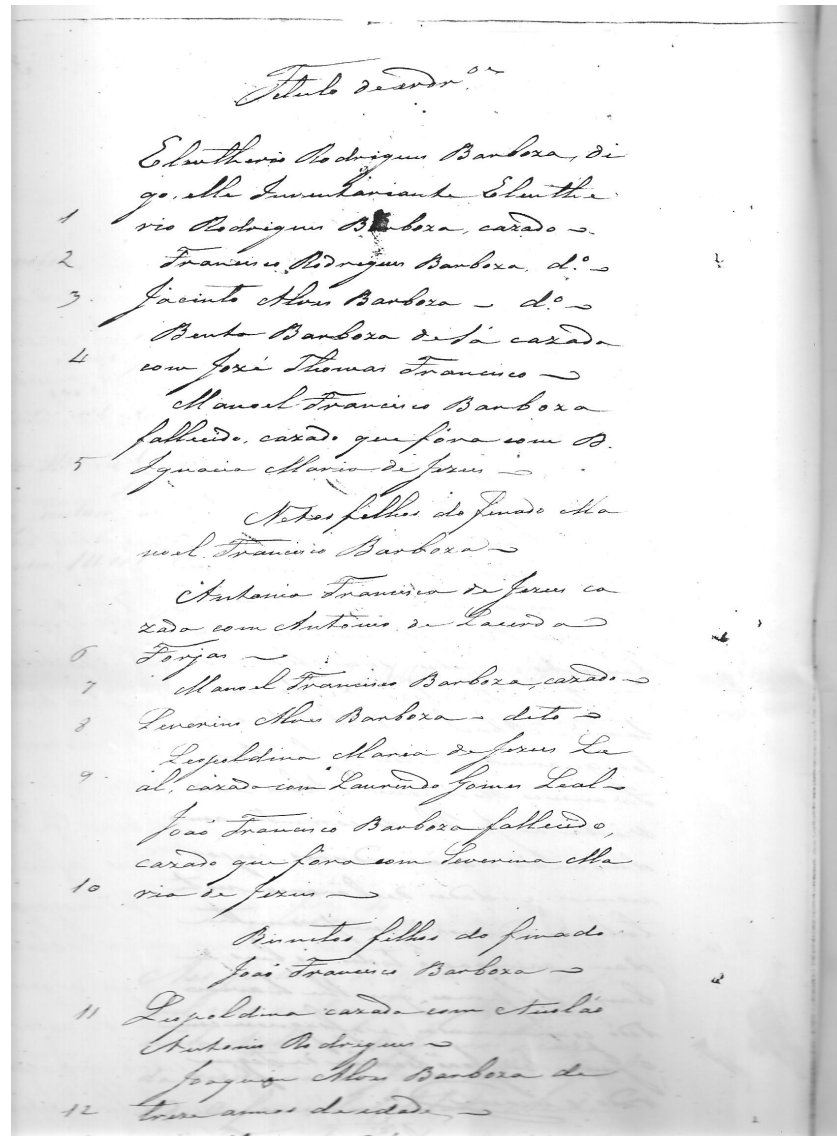 Titulo de erdr.os
Eleutherio Rodrigues Barboza, di
go, elle Inventariante Eleuthe
1 rio Rodrigues Barboza, cazado
2 Francisco Rodrigues Barboza, d.º
3 Jacinto Alves Barboza d.º
Benta Barboza de Sá cazada
4 com José Thomas Francisco
Manoel Francisco Barboza
fallecido, cazado que fôra com D.
5 Ignacia Maria de Jezus
Netos filhos do finado Ma
noel Francisco Barboza
Antonia Francisca de Jezus ca
zada com Antonio de Lacerda
6 Forjas
7 Manoel Francisco Barboza, cazado
8 Severino Alves Barboza dito
Leopoldina Maria de Jezus Le
9 al, cazada com Laurindo Gomes Leal
João Francisco Barboza fallecido,
cazado que fôra com Severina Ma
10 ria de Jezus
Bisnetos filhos do finado
João Francisco Barboza
11 Leopoldina cazada com Nicoláo
Antonio Rodrigues
Joaquim Alves Barboza de
12 treze annos de idade